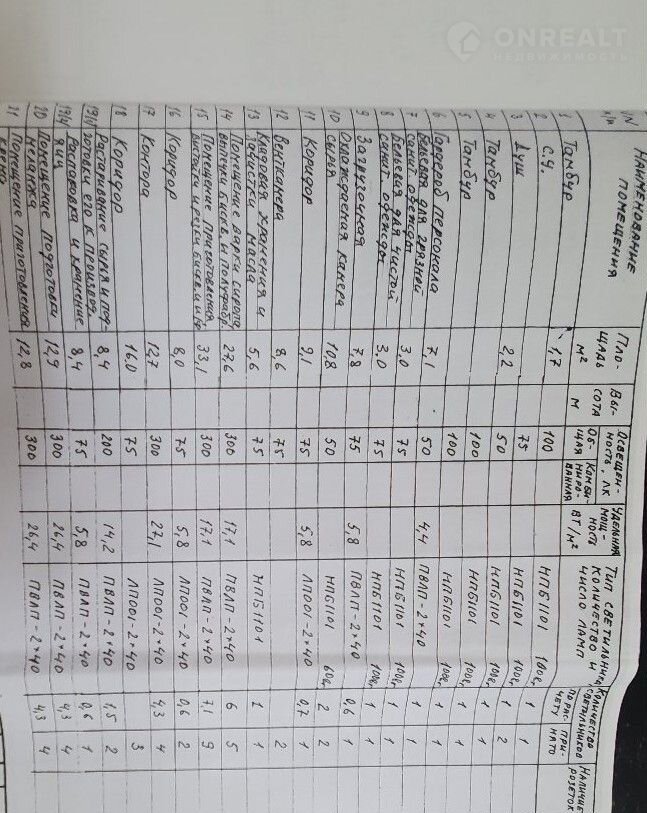 ONREALT
НЕДВИЖИМОСТЬ
NN п/п | НАИМЕНОВАНИЕ ПОМЕЩЕНИЯ | ПЛО-ЩАДЬ м² | ВЫ-СОТА м | ОСВЕЩЕН-НОСТЬ, ЛК ОБ-ЩАЯ | КОМБИ-НИРО-ВАННАЯ | УДЕЛЬНАЯ МОЩ-НОСТЬ ВТ/м² | ТИП СВЕТИЛЬНИКА, КОЛИЧЕСТВО И ЧИСЛО ЛАМП | КОЛИЧЕСТВО СВЕТИЛЬНИКОВ ПО РАС-ЧЕТУ | ПРИ-НЯТО | НАЛИЧИЕ РОЗЕТОК
1 Тамбур 1,7 100 НПБ1101 100с, 1 1
2 С.у. 75 НПБ1101 100с, 1 1
3 Душ 2,2 50 НПБ1101 100с, 1 2
4 Тамбур 100 НПБ1101 100с, 1 1
5 Тамбур 100 НПБ1101 100с, 1 1
6 Гардероб персонала 7,1 50 4,4 ПВЛП-2×40 1 1
Бельевая для грязной
7 санит. одежды 3,0 75 НПБ1101 100с, 1 1
Бельевая для чистой
8 санит. одежды 3,0 75 НПБ1101 100с, 1 1
9 Загрузочная 7,8 75 5,8 ПВЛП-2×40 0,6 1
Охлаждаемая камера
10 сырья 10,8 50 НПБ1101 60с, 2 2
11 Коридор 9,1 75 5,8 ЛПО01-2×40 0,7 1
12 Венткамера 8,6 75 2
Кладовая хранения и
13 зачистки масла 5,6 75 НПБ1101 1 1
Помещение варки сиропа,
14 выпечки бискв. и полуфабр. 27,6 300 17,1 ПВЛП-2×40 6 5
Помещение приготовления
15 33,1 300 17,1 ПВЛП-2×40 7,1 9
16 Коридор 8,0 75 5,8 ЛПО01-2×40 0,6 2
17 Контора 12,7 300 27,1 ЛПО01-2×40 4,3 4
18 Коридор 16,0 75 ЛПО01-2×40 3
Растаривание сырья и под-
готовки его к производ. 8,4 200 14,2 ПВЛП-2×40 1,5 2
Распаковка и хранение
яиц 8,4 75 5,8 ПВЛП-2×40 0,6 1
Помещение подготовки
20 меланжа 12,9 300 26,4 ПВЛП-2×40 4,3 4
21 Помещение приготовления
крема 12,8 300 26,4 ПВЛП-2×40 4,3 4